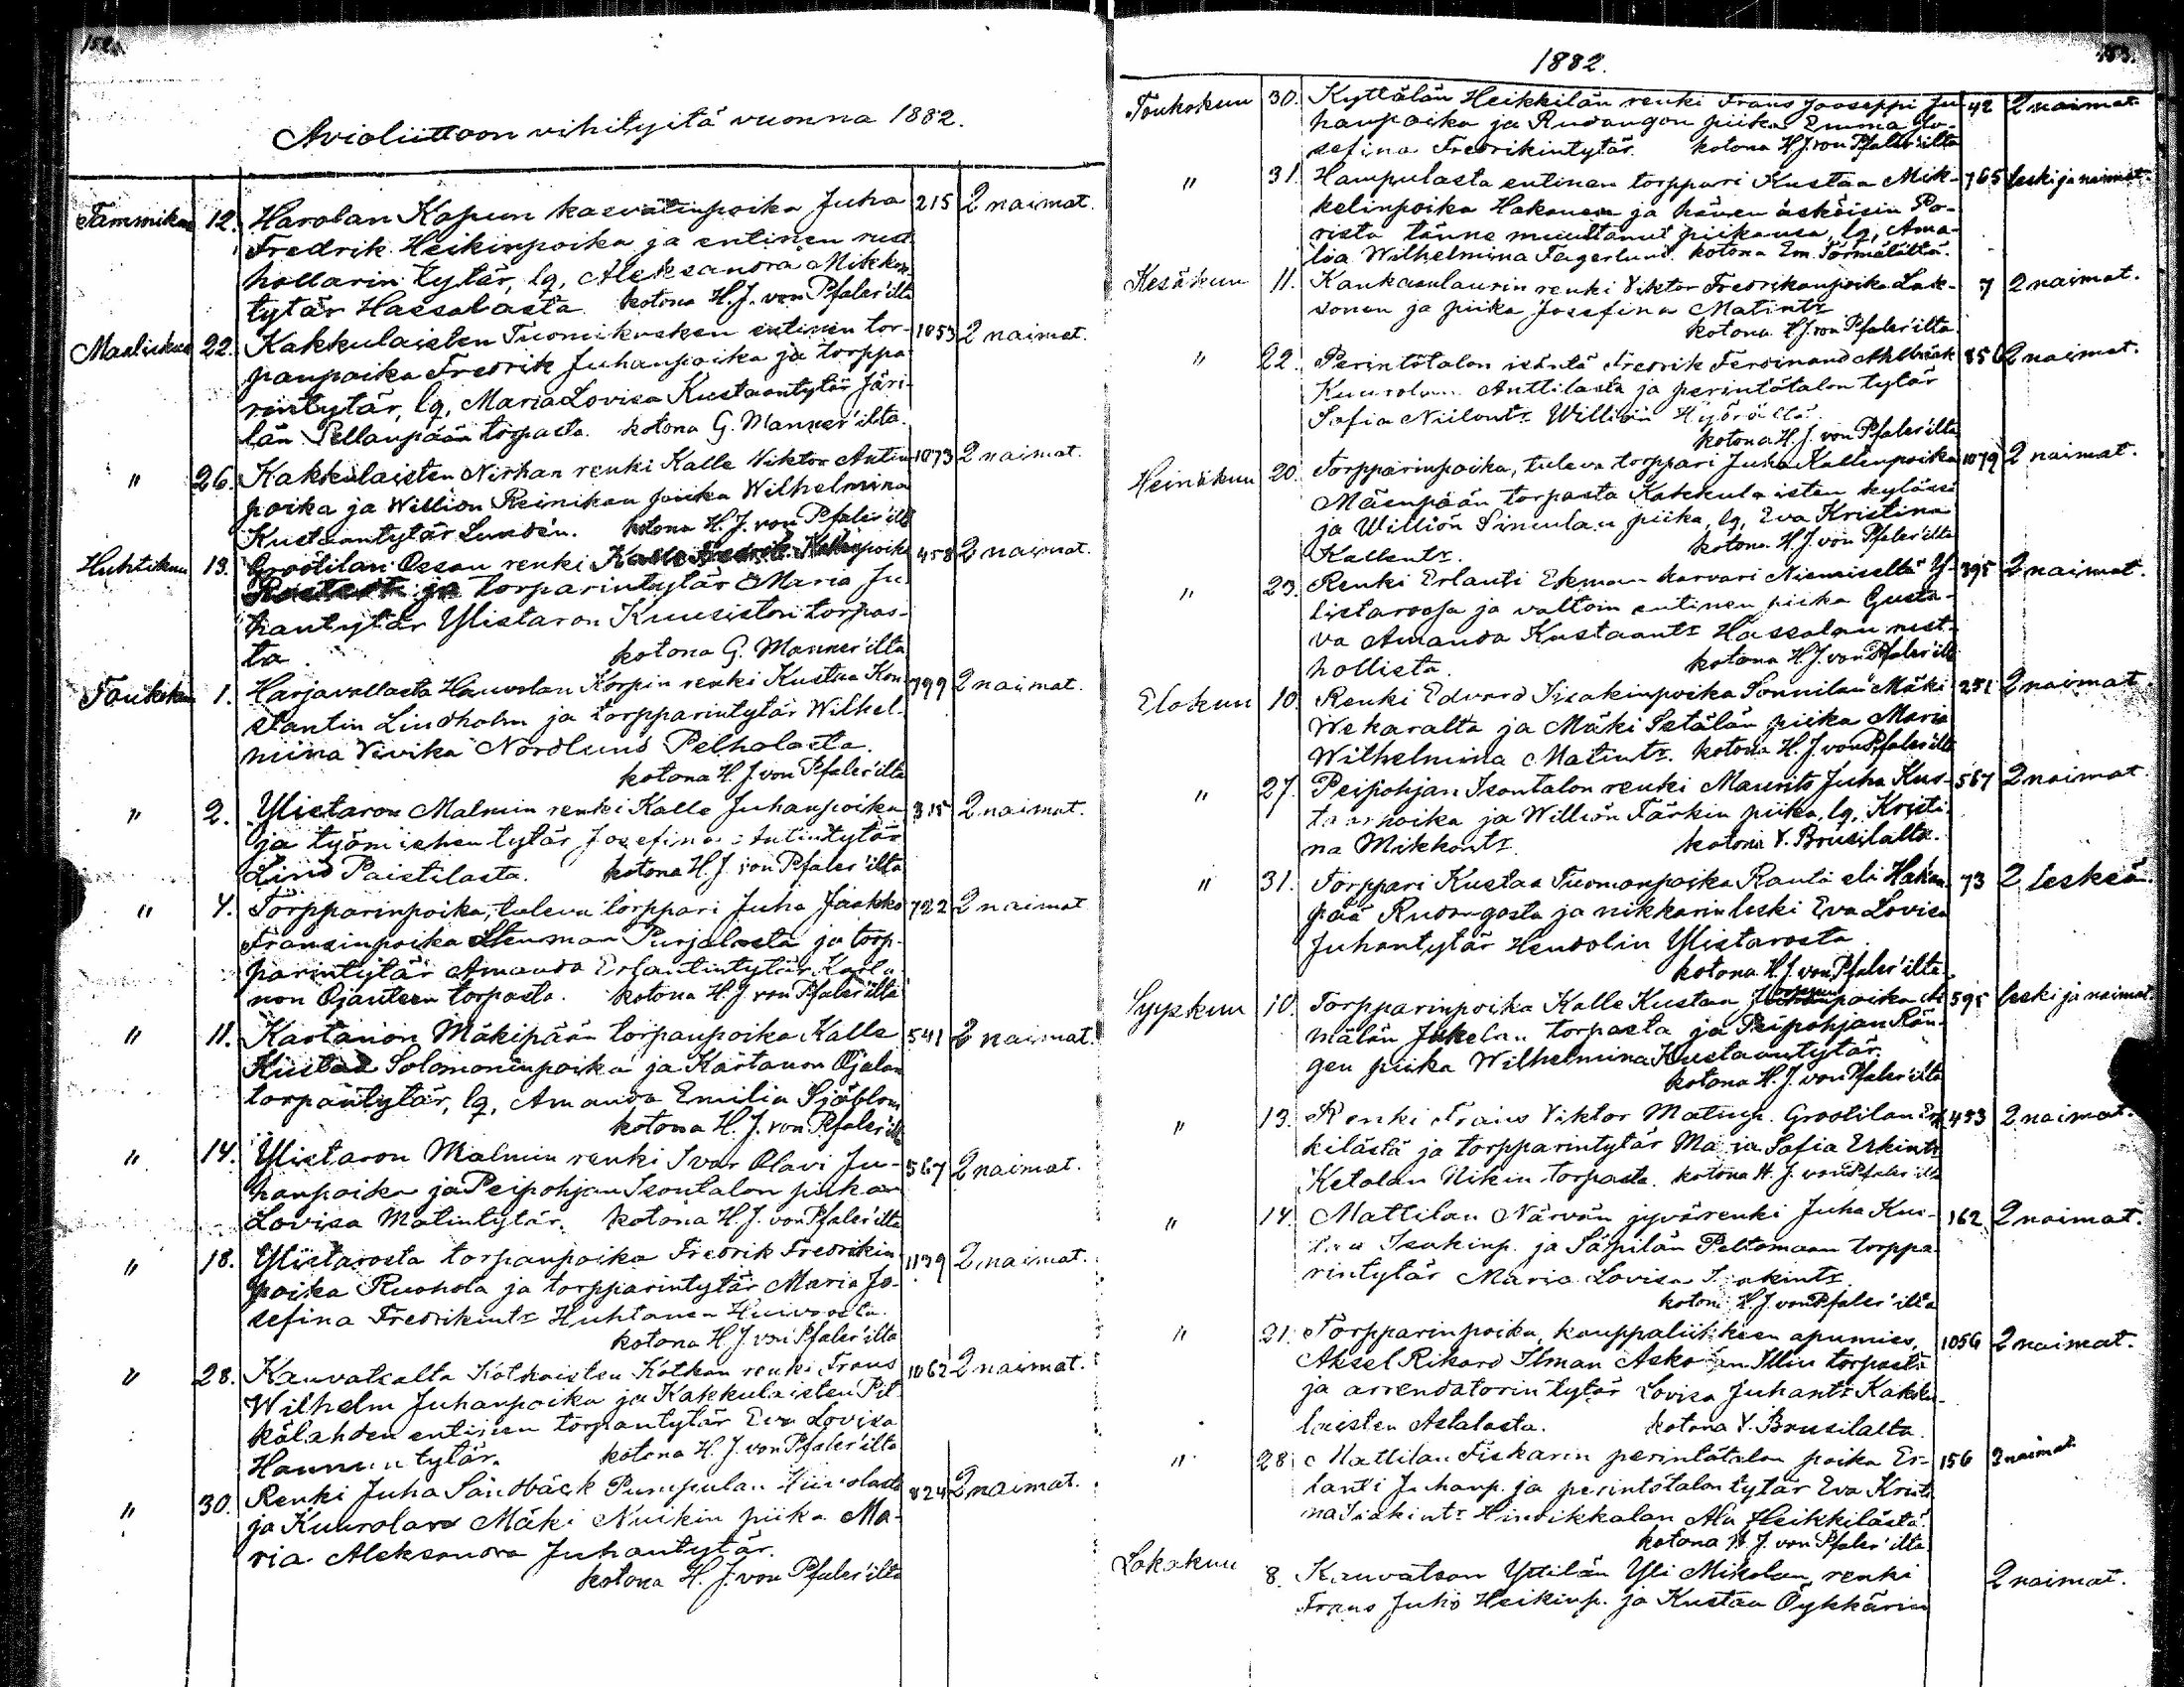 152.
Avioliittoon vihityitä vuonna 1882.
Tammikuu 12. Harolan Kapun kasvatinpoika Juha 215 2 naimat.
Fredrik Heikinpoika ja entinen rust
hollarin tytär, lq, Aleksandra Mikkon
tytär Hassalasta kotona H. J. von Pfaler'ilta
Maaliskuu 22. Kakkulaisten Tuomikosken entinen tor- 1053 2 naimat.
panpoika Fredrik Juhanpoika ja torppa
rintytär, lq, Maria Lovisa Kustaantytär Järi-
län Pellanpään torpasta. kotona G. Manner'ilta.
" 26. Kakkulaisten Nirhan renki Kalle Viktor Antin 1073 2 naimat.
poika ja Williön Reinikan piika Wilhelmina
Kustaantytär Lundén. kotona H. J. von Pfaler'ilta
Huhtikuu 13. Grootilan Ossan renki Kalle Fredrik Kallenpoika 458 2 naimat.
ja torparintytär Maria Ju
hantytär Ylistaron Kuusiston torpas-
ta. kotona G. Manner'ilta
Toukokuu 1. Harjavallasta Hauvolan Korpin renki Kustaa Kon 799 2 naimat.
stantin Lindholm ja torpparintytär Wilhel-
miina Vivika Nordlund Pelholasta.
kotona H. J. von Pfaler'ilta
" 2. Ylistaron Malmin renki Kalle Juhanpoika 315 2 naimat.
ja työmiehen tytär Josefina Antintytär
Lind Paistilasta. kotona H. J. von Pfaler'ilta
" 4. Torpparinpoika, tuleva torppari Juha Jaakko 722 2 naimat
Fransinpoika Stenman Purjalasta ja torp-
parintytär Amanda Erlantintytär Karta
non Ojansten torpasta. kotona H. J. von Pfaler'ilta
" 11. Kartanon Mäkipään torpanpoika Kalle 541 2 naimat.
Kustaa Solomoninpoika ja Kartanon Ojalan
torpantytär, lq, Amanda Emilia Sjöblom
kotona H. J. von Pfaler'ilta
" 14. Ylistaron Malmin renki Ivar Olavi Ju- 567 2 naimat.
hanpoika ja Peipohjan Isontalon piika
Lovisa Matintytär. kotona H. J. von Pfaler'ilta
" 18. Ylistarosta torpanpoika Fredrik Fredrikin 1139 2 naimat.
poika Ruohola ja torpparintytär Maria Jo-
sefina Fredrikintr Huhtanen
kotona H. J. von Pfaler'ilta
" 28. Kauvatsalta Kotkaisten Kotkan renki Frans 1062 2 naimat.
Wilhelm Juhanpoika ja Kakkulaisten Pit
kälahden entinen torpantytär Eva Lovisa
Hannuntytär. kotona H. J. von Pfaler'ilta
" 30. Renki Juha Sandbäck Pumpulan 824 2 naimat.
ja Kuurolan Mäki Nuikin piika Ma-
ria Aleksandra Juhantytär.
kotona H. J. von Pfaler'ilta
153.
1882.
Toukokuu 30. Kyttälän Heikkilän renki Frans Jooseppi Ju 42 2 naimat
hanpoika ja Rudangon piika Emma Jo-
sefina Fredrikintytär. kotona H. J. von Pfaler'ilta
" 31. Hampulasta entinen torppari Kustaa Mik- 765 leski ja naimat.
kelinpoika Hakanen ja hänen äsköisin Po-
rista tänne muuttanut piikansa, lq, Ama-
lia Wilhelmina Fagerlund. kotona Em. Törmälältä.
Kesäkuu 11. Kankaanlaurin renki Viktor Fredrikanpoika Lak- 7 2 naimat.
sonen ja piika Josefina Matintr
kotona H. J. von Pfaler'ilta.
" 22. Perintötalon isäntä Fredrik Ferdinand Ahlbäck 856 2 naimat.
Kuurolan Anttilasta ja perintötalon tytär
Sofia Niilontr Williön Hyörältä.
kotona H. J. von Pfaler'ilta
Heinäkuu 20. Torpparinpoika, tuleva torppari Juha Kallenpoika 1079 2 naimat.
Mäenpään torpasta Kakkulaisten kylässä
ja Williön Simulan piika, lq, Eva Kristina
Kallentr. kotona H. J. von Pfaler'ilta
" 23. Renki Erlanti Ekman karvari Niemiseltä Y- 395 2 naimat.
listarosta ja valtoin entinen piika Gusta-
va Amanda Kustaantr Hassalan rust-
hollista. kotona H. J. von Pfaler'ilta
Elokuu 10. Renki Edvard Isakinpoika Sonnilan Mäki 251 2 naimat
Wekaralta ja Mäki Setälän piika Maria
Wilhelmina Matintr. kotona H. J. von Pfaler'ilta
" 27. Peipohjan Isontalon renki Maurits Juha Kus- 567 2 naimat.
taanpoika ja Williön Färkin piika, lq, Kristi-
na Mikkontr. kotona V. Brusilalta.
" 31. Torppari Kustaa Tuomanpoika Ranta eli Hakan 73 2 leskeä.
pää Rudangosta ja nikkarin leski Eva Lovisa
Juhantytär Hendolin Ylistarosta
kotona H. J. von Pfaler'ilta.
Syyskuu 10. Torpparinpoika Kalle Kustaa 595 leski ja naimat.
mälän Jukolan torpasta ja Peipohjan Rän-
gen piika Wilhelmina Kustaantytär.
kotona H. J. von Pfaler'ilta
" 13. Renki Frans Viktor Matinp. Grootilan Erk 453 2 naimat.
kilästä ja torpparintytär Maria Sofia Erkintr
Ketolan Nikin torpasta. kotona H. J. von Pfaler'ilta
" 14. Mattilan Närvän jyvärenki Juha Kus- 162 2 naimat.
taa Isakinp. ja Säpilän Peltomaan torppa-
rintytär Maria Lovisa Isakintr.
kotona H. J. von Pfaler'ilta
" 21. Torpparinpoika, kauppaliikkeen apumies, 1056 2 naimat.
Aksel Rikard Ilman Askolan Illin torpasta
ja arrendatorin tytär Lovisa Juhantr Kakku-
laisten Astalasta. kotona V. Brusilalta.
" 28. Mattilan Fiskarin perintötalon poika Er- 156 2 naimat
lanti Juhanp. ja perintötalon tytär Eva Kristi
na Isakintr Hindikkalan Ala Heikkilästä.
kotona H. J. von Pfaler'ilta
Lokakuu 8. Kauvatsan Yttilän Yli Mikolan renki 2 naimat.
Frans Juho Heikinp. ja Kustaa Öykkärin